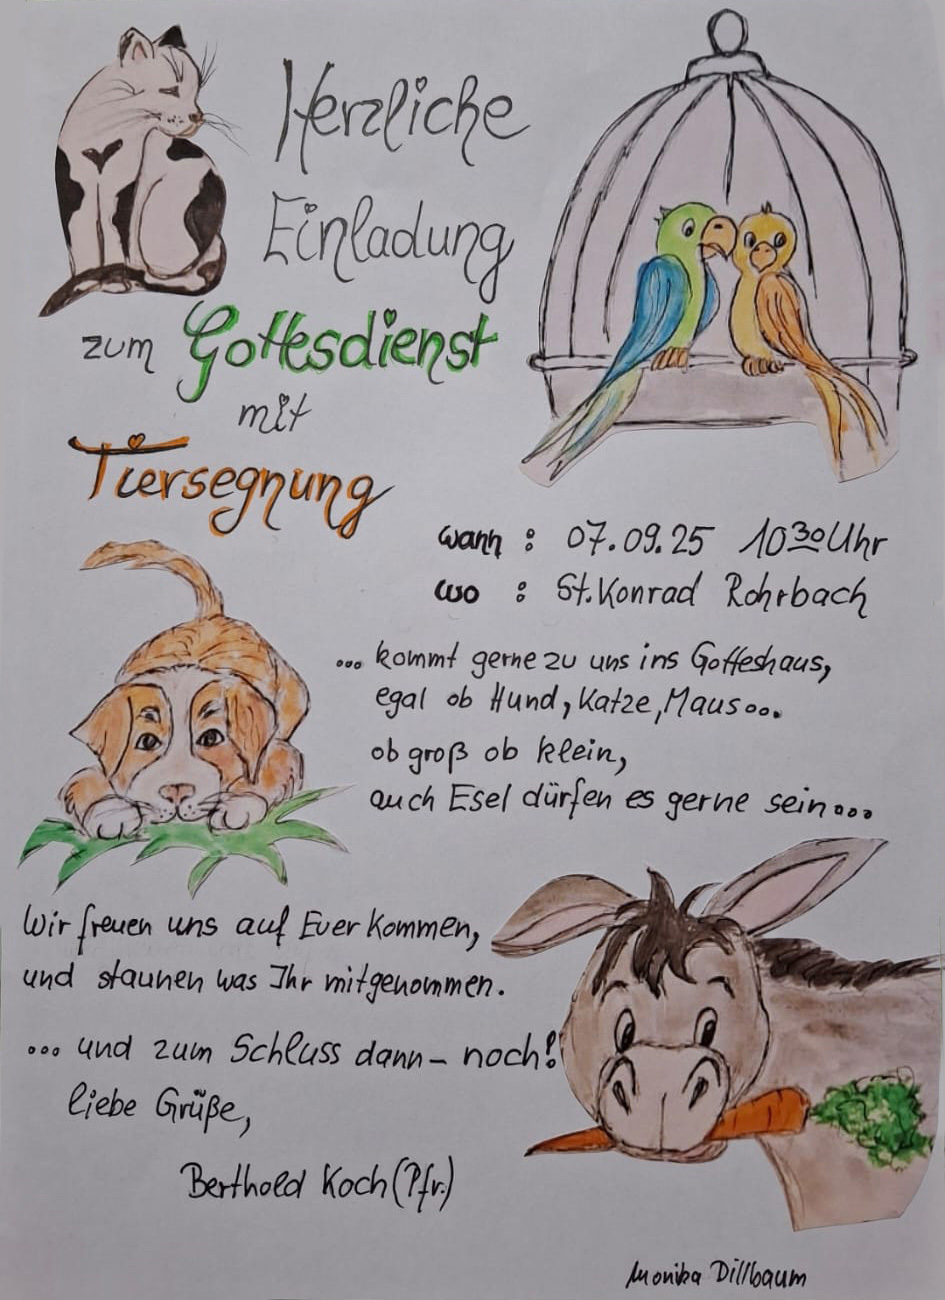 Herzliche
Einladung
zum Gottesdienst
mit
Tiersegnung
wann : 07.09.25 10³⁰ Uhr
wo : St. Konrad Rohrbach
... kommt gerne zu uns ins Gotteshaus,
egal ob Hund, Katze, Maus...
ob groß ob klein,
auch Esel dürfen es gerne sein...
Wir freuen uns auf Euer Kommen,
und staunen was Ihr mitgenommen.
... und zum Schluss dann – noch!
liebe Grüße,
Berthold Koch (Pfr.)
Monika Dillbaum